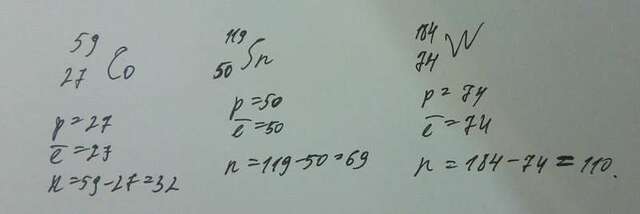 59
27 Co
p = 27
e̅ = 27
n = 59 - 27 = 32
119
50 Sn
p = 50
e̅ = 50
n = 119 - 50 = 69
184
74 W
p = 74
e̅ = 74
n = 184 - 74 = 110.